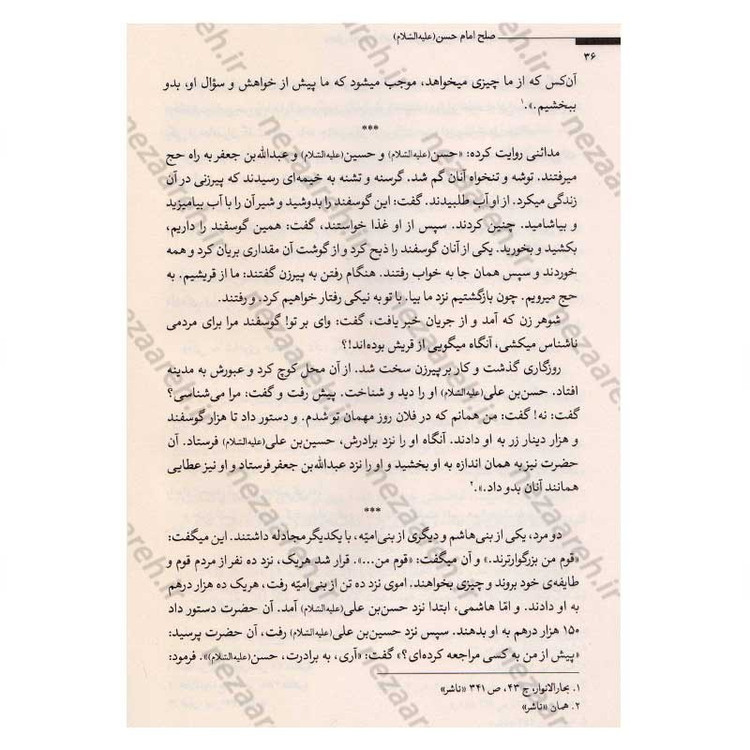 صلح امام حسن (علیه‌السّلام)
۳۶
آن‌کس که از ما چیزی میخواهد، موجب میشود که ما پیش از خواهش و سؤال او، بدو
ببخشیم.».۱
***
مدائنی روایت کرده: «حسن (علیه‌السّلام) و حسین (علیه‌السّلام) و عبدالله‌بن جعفر به راه حج
میرفتند. توشه و تنخواه آنان گم شد. گرسنه و تشنه به خیمه‌ای رسیدند که پیرزنی در آن
زندگی میکرد. از او آب طلبیدند. گفت: این گوسفند را بدوشید و شیر آن را با آب بیامیزید
و بیاشامید. چنین کردند. سپس از او غذا خواستند، گفت: همین گوسفند را داریم،
بکشید و بخورید. یکی از آنان گوسفند را ذبح کرد و از گوشت آن مقداری بریان کرد و همه
خوردند و سپس همان جا به خواب رفتند. هنگام رفتن به پیرزن گفتند: ما از قریشیم. به
حج میرویم. چون بازگشتیم نزد ما بیا. با تو به نیکی رفتار خواهیم کرد. و رفتند.
شوهر زن که آمد و از جریان خبر یافت، گفت: وای بر تو! گوسفند مرا برای مردمی
ناشناس میکشی، آنگاه میگویی از قریش بوده‌اند!؟
روزگاری گذشت و کار بر پیرزن سخت شد. از آن محل کوچ کرد و عبورش به مدینه
افتاد. حسن‌بن علی (علیه‌السّلام) او را دید و شناخت. پیش رفت و گفت: مرا می‌شناسی؟
گفت: نه! گفت: من همانم که در فلان روز مهمان تو شدم. و دستور داد تا هزار گوسفند
و هزار دینار زر به او دادند. آنگاه او را نزد برادرش، حسین‌بن علی (علیه‌السّلام) فرستاد. آن
حضرت نیز به همان اندازه به او بخشید و او را نزد عبدالله‌بن جعفر فرستاد و او نیز عطایی
همانند آنان بدو داد.».۲
***
دو مرد، یکی از بنی‌هاشم و دیگری از بنی‌امیّه، با یکدیگر مجادله داشتند. این میگفت:
«قوم من بزرگوارترند.» و آن میگفت: «قوم من...». قرار شد هریک، نزد ده نفر از مردم قوم و
طایفه‌ی خود بروند و چیزی بخواهند. اموی نزد ده تن از بنی‌امیّه رفت، هریک ده هزار درهم
به او دادند. و امّا هاشمی، ابتدا نزد حسن‌بن علی (علیه‌السّلام) آمد. آن حضرت دستور داد
۱۵۰ هزار درهم به او بدهند. سپس نزد حسین‌بن علی (علیه‌السّلام) رفت، آن حضرت پرسید:
«پیش از من به کسی مراجعه کرده‌ای؟» گفت: «آری، به برادرت، حسن (علیه‌السّلام)». فرمود:
۱. بحارالانوار، ج ۴۳، ص ۳۴۱ «ناشر»
۲. همان «ناشر»
nezaareh.ir